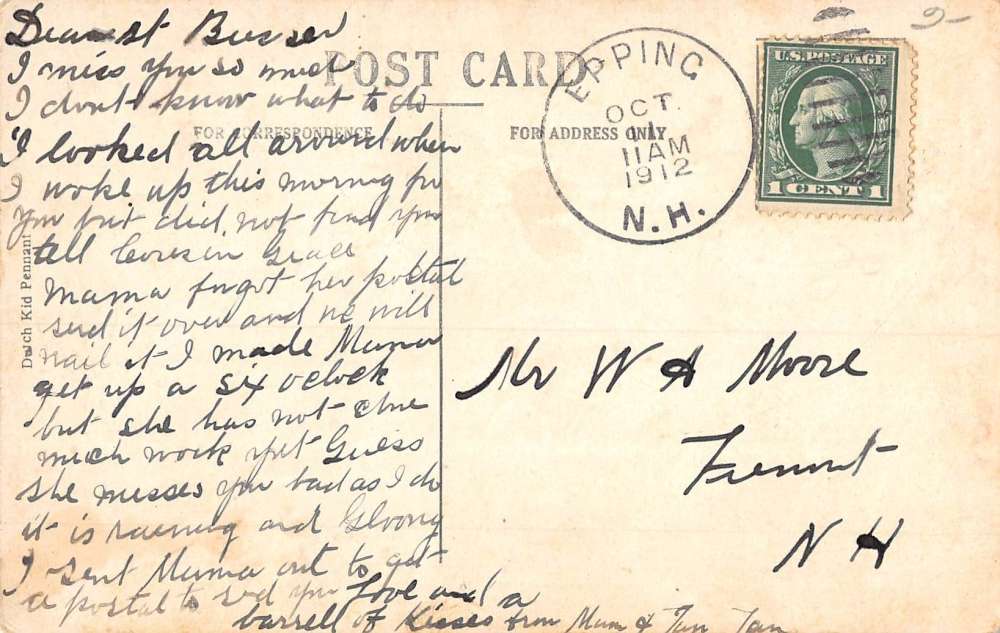 Dearest Buster
I miss you so much
I dont know what to do
I looked all around when
I woke up this morning for
you but did not find you
tell Cousin Grace
Mama forgot her postal
send it over and we will
mail it I made Mama
get up a six oclock
but she has not done
much work yet Guess
she misses you bad as I do
it is raening and Gloony
I sent Mama out to get
a postal to sed you Love and a
barrell of Kisses from Mum &
POST CARD
FOR CORRESPONDENCE
FOR ADDRESS ONLY
Dutch Kid Pennant
EPPING
OCT.
11
11AM
1912
N.H.
U.S. POSTAGE
1 CENT 1
2-
Mr W A Moore
Fremont
N H